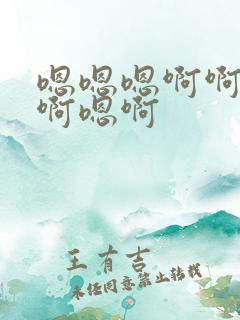 嗯嗯嗯啊啊
啊嗯啊
王有吉
未经同意禁止转载